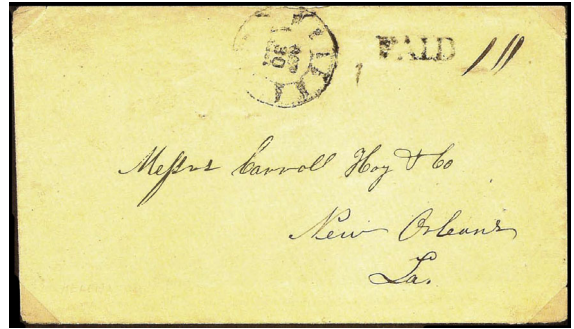 PAID
APR
30
Messrs Carroll Hoy & Co
New Orleans
La.